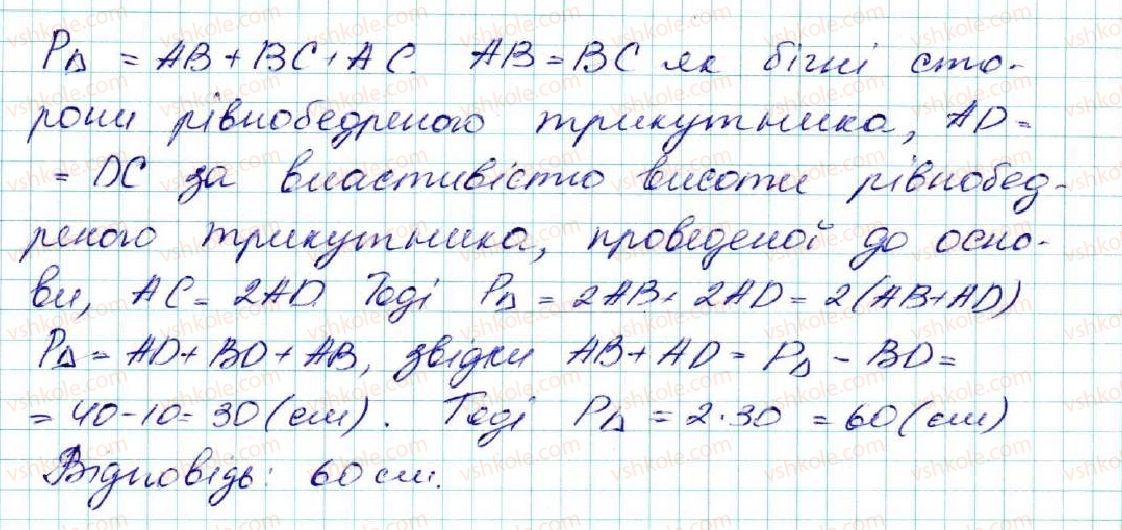 P△ = AB + BC + AC. AB = BC як бічні сто-
рони рівнобедреного трикутника, AD =
= DC за властивістю висоти рівнобед-
реного трикутника, проведеної до осно-
ви, AC = 2AD. Тоді P△ = 2AB + 2AD = 2(AB+AD)
P△ = AD + BD + AB, звідки AB + AD = P△ - BD =
= 40 - 10 = 30 (см). Тоді P△ = 2·30 = 60 (см)
Відповідь: 60 см.